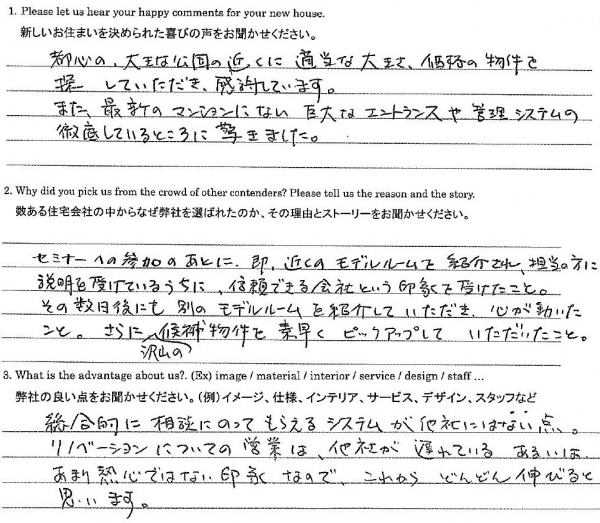 1. Please let us hear your happy comments for your new house.
新しいお住まいを決められた喜びの声をお聞かせください。
都心の、大きな公園の近くに適当な大きさ、価格の物件を
探していただき、感謝しています。
また、最新のマンションにない巨大なエントランスや管理システムの
徹底しているところに驚きました。
2. Why did you pick us from the crowd of other contenders? Please tell us the reason and the story.
数ある住宅会社の中からなぜ弊社を選ばれたのか、その理由とストーリーをお聞かせください。
セミナーへの参加のあとに、即、近くのモデルルームを紹介され、担当の方に
説明を受けているうちに、信頼できる会社という印象を受けたこと。
その数日後にも別のモデルルームを紹介していただき、心が動いた
こと。さらに沢山の候補物件を素早くピックアップしていただいたこと。
3. What is the advantage about us?. (Ex) image / material / interior / service / design / staff ...
弊社の良い点をお聞かせください。(例)イメージ、仕様、インテリア、サービス、デザイン、スタッフなど
総合的に相談にのってもらえるシステムが他社にはない点。
リノベーションについての営業は、他社が遅れているあるいは、
あまり熱心ではない印象なので、これからどんどん伸びると
思います。